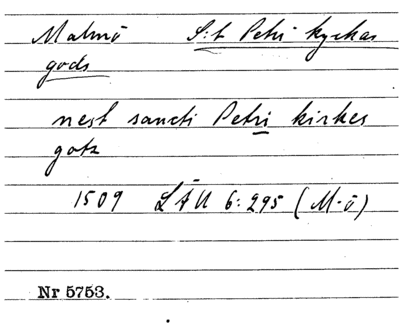 Malmö S:t Petri kyrkas
gods
nest sancti Petri kirkes
gotz
1509 LÄU 6:295 (M-ö)
Nr 5753.